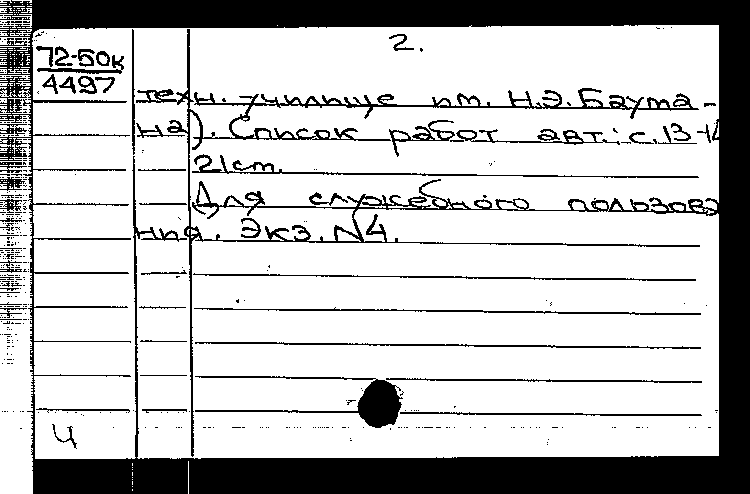 2.
72-50к
4497
техн. училище им. Н.Э. Баума-
на). Список работ авт.: с. 13-14
21 см.
Для служебного пользова
ния. Экз. №4.
Ч